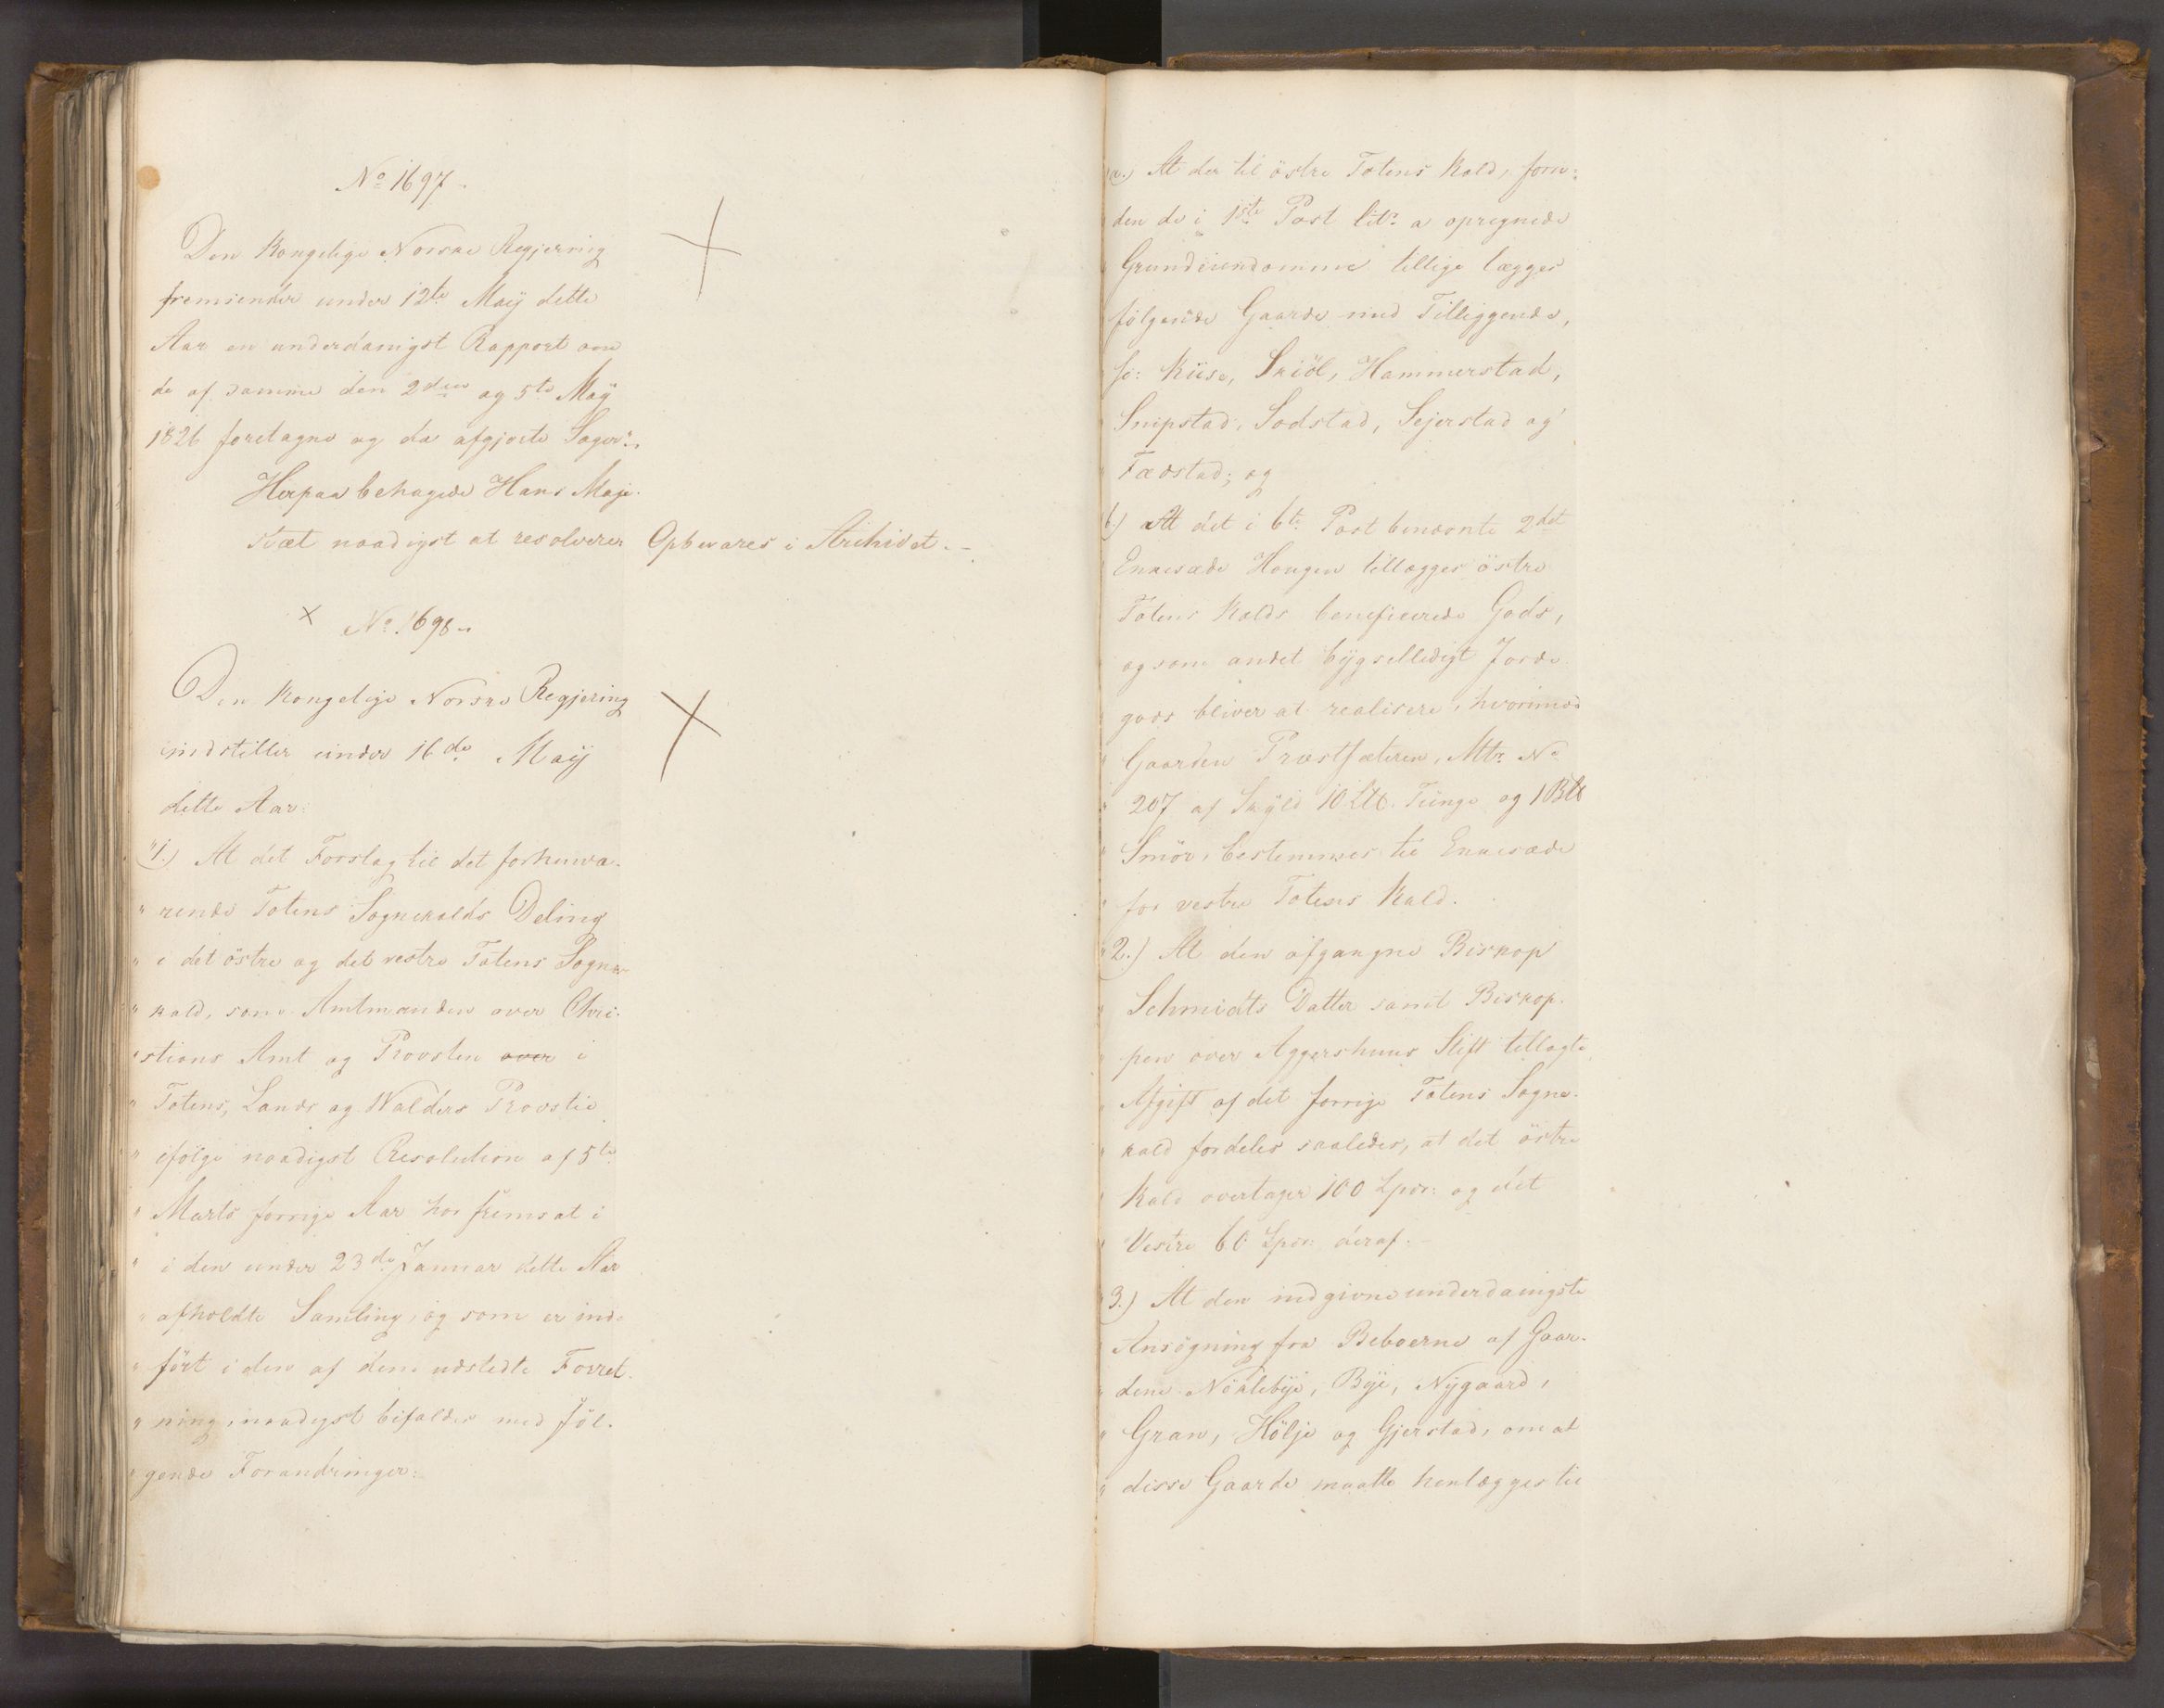 No 1697.
Den Kongelige Norske Regjering
fremsender under 12te Maÿ dette
Aar en underdanigst Rapport om
de af samme den 2den og 5te Maÿ
1826 foretagne og da afgjorte Sager.
Herpaa behagede Hans Maje-
stæt naadigst at resolvere: Opbevares i Archivet.-
No 1698.
Den Kongelige Norske Regjering
indstiller under 16de Maÿ
dette Aar:
"1.) At det Forslag til det forhenva-
" rende Totens Sognekalds Deling
" i det östre og det vestre Totens Sogne-
" kald, som Amtmanden over Chri-
" stians Amt og Provsten over i
" Totens, Lands og Walders Provstie
" ifölge naadigst Resolution af 5te
" Marts forrige Aar har fremsat i
" i den under 23de Januar dette Aar
" afholdte Samling, og som er ind-
" fört i den af dem udstedte Forret-
" ning, naadigst bifaldes med föl-
" gende Forandringer:
"a.) At der til östre Totens Kald, foru-
" den de i 1ste Post litr. a opregnede
" Grundeiendomme tillige lægges
" fölgende Gaarde med Tilliggende,
" so: Kiise, Skiöl, Hammerstad,
" Snipstad, Sodstad, Sejerstad og
" Fædstad; og
"b.) At det i 6te Post benævnte 2det
" Enkesæde Hougen tillægges östre
" Totens Kalds beneficerede Gods,
" og som andet bÿgselledigt Jorde-
" gods bliver at realisere, hvorimod
" Gaarden Præstsæteren, Mtr. No
" 207 af Skÿld 10 L℔. Tunge og 1 B℔
" Smör, bestemmes til Enkesæde
" for vestre Totens Kald.
"2.) At den afgangne Biskop
" Schmidts Datter samt Biskop-
" pen over Aggershuus Stift tillagte
" Afgift af det forrige Totens Sogne-
" kald fordeles saaledes, at det östre
" Kald overtager 100 Spdr: og det
" Vestre 60 Spdr: deraf.-
"3.) At den indgivne underdanigste
" Ansögning fra Beboerne af Gaar-
" dene Nöklebÿe, Bÿe, Nÿgaard,
" Gran, Hölje og Gjerstad, om at
" disse Gaarde maatte henlægges til